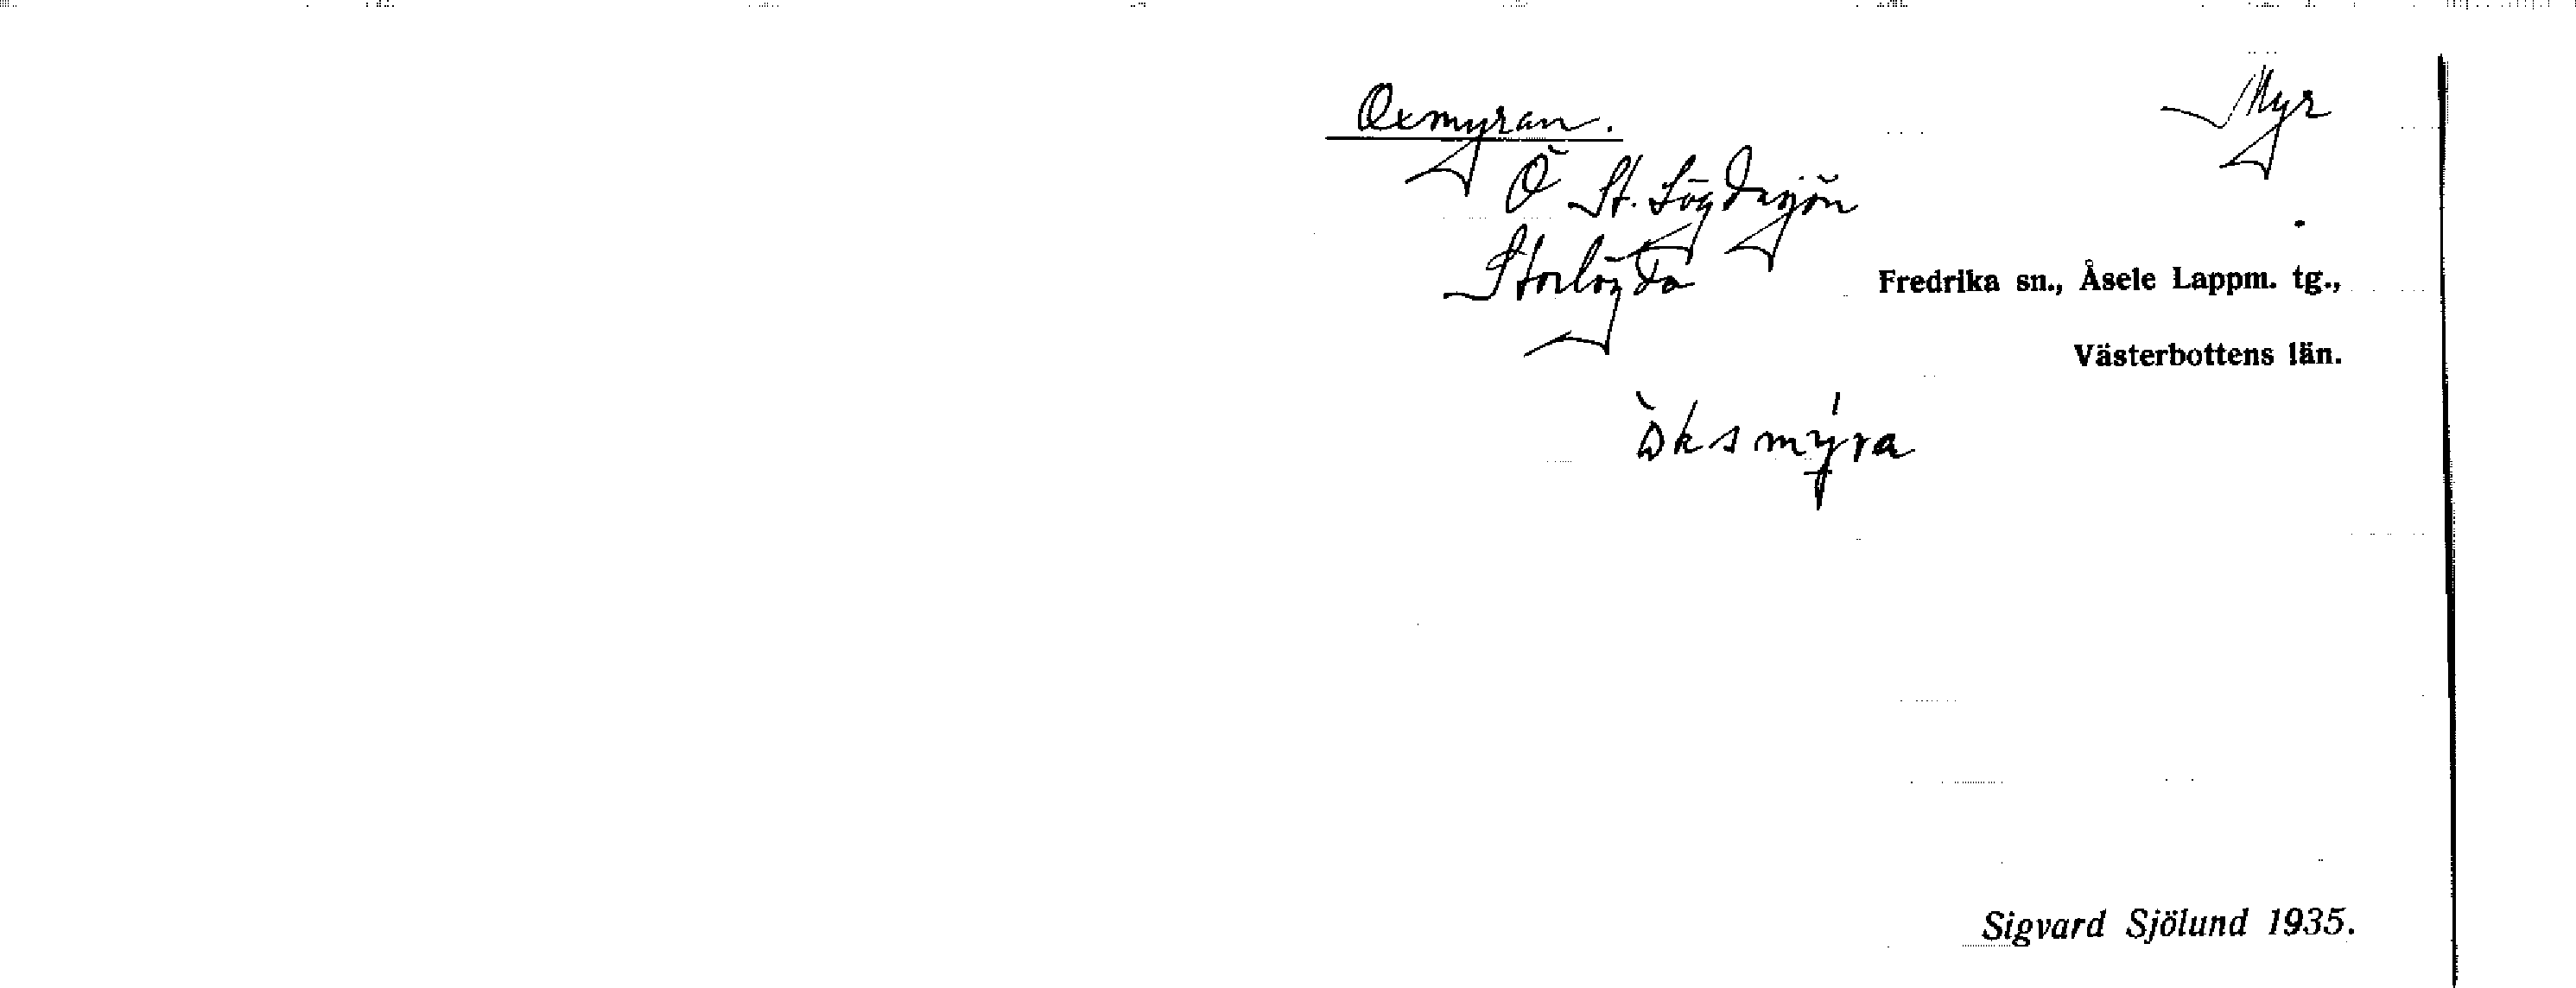 Oxmyran. Myr
Ö St. Lögdasjön
Storlögda Fredrika sn., Åsele Lappm. tg.,
Västerbottens län.
òksmýra
Sigvard Sjölund 1935.